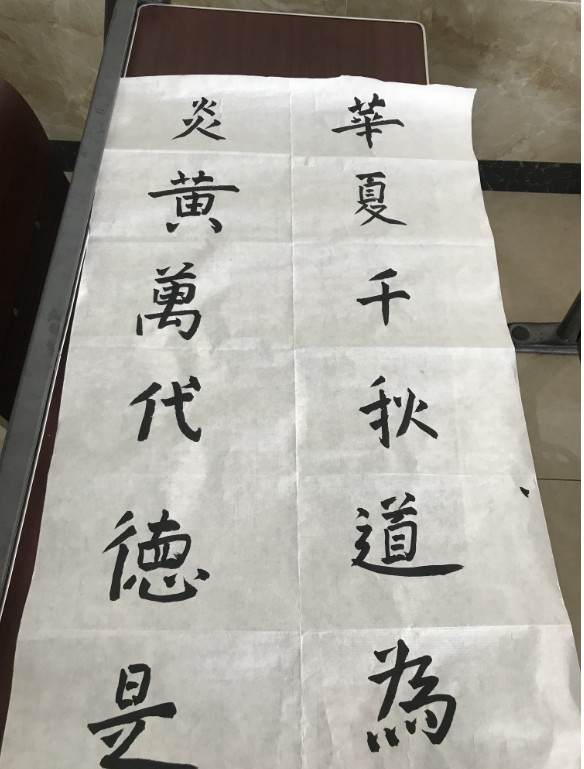 華夏千秋道為
炎黃萬代德是